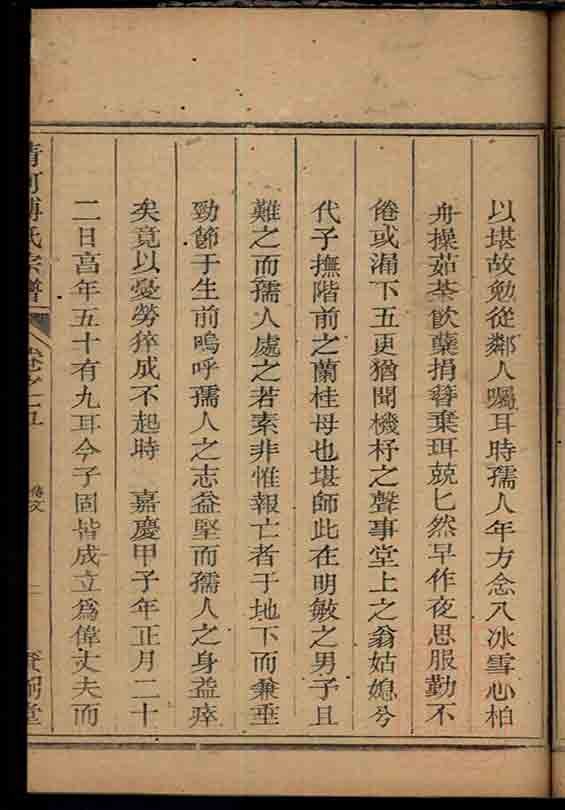 以堪故勉從鄰人囑耳時孺人年方念八冰雪心柏
舟操茹荼飲蘗捐簪棄珥兢匕然早作夜思服勤不
倦或漏下五更猶聞機杼之聲事堂上之翁姑媳兮
代子撫階前之蘭桂母也堪師此在明敏之男子且
難之而孺人處之若素非惟報亡者于地下而兼垂
勁節于生前嗚呼孺人之志益堅而孺人之身益瘁
矣竟以憂勞猝成不起時　嘉慶甲子年正月二十
二日亯年五十有九耳今子固皆成立爲偉丈夫而
清河傅氏宗譜 卷之五 傳文